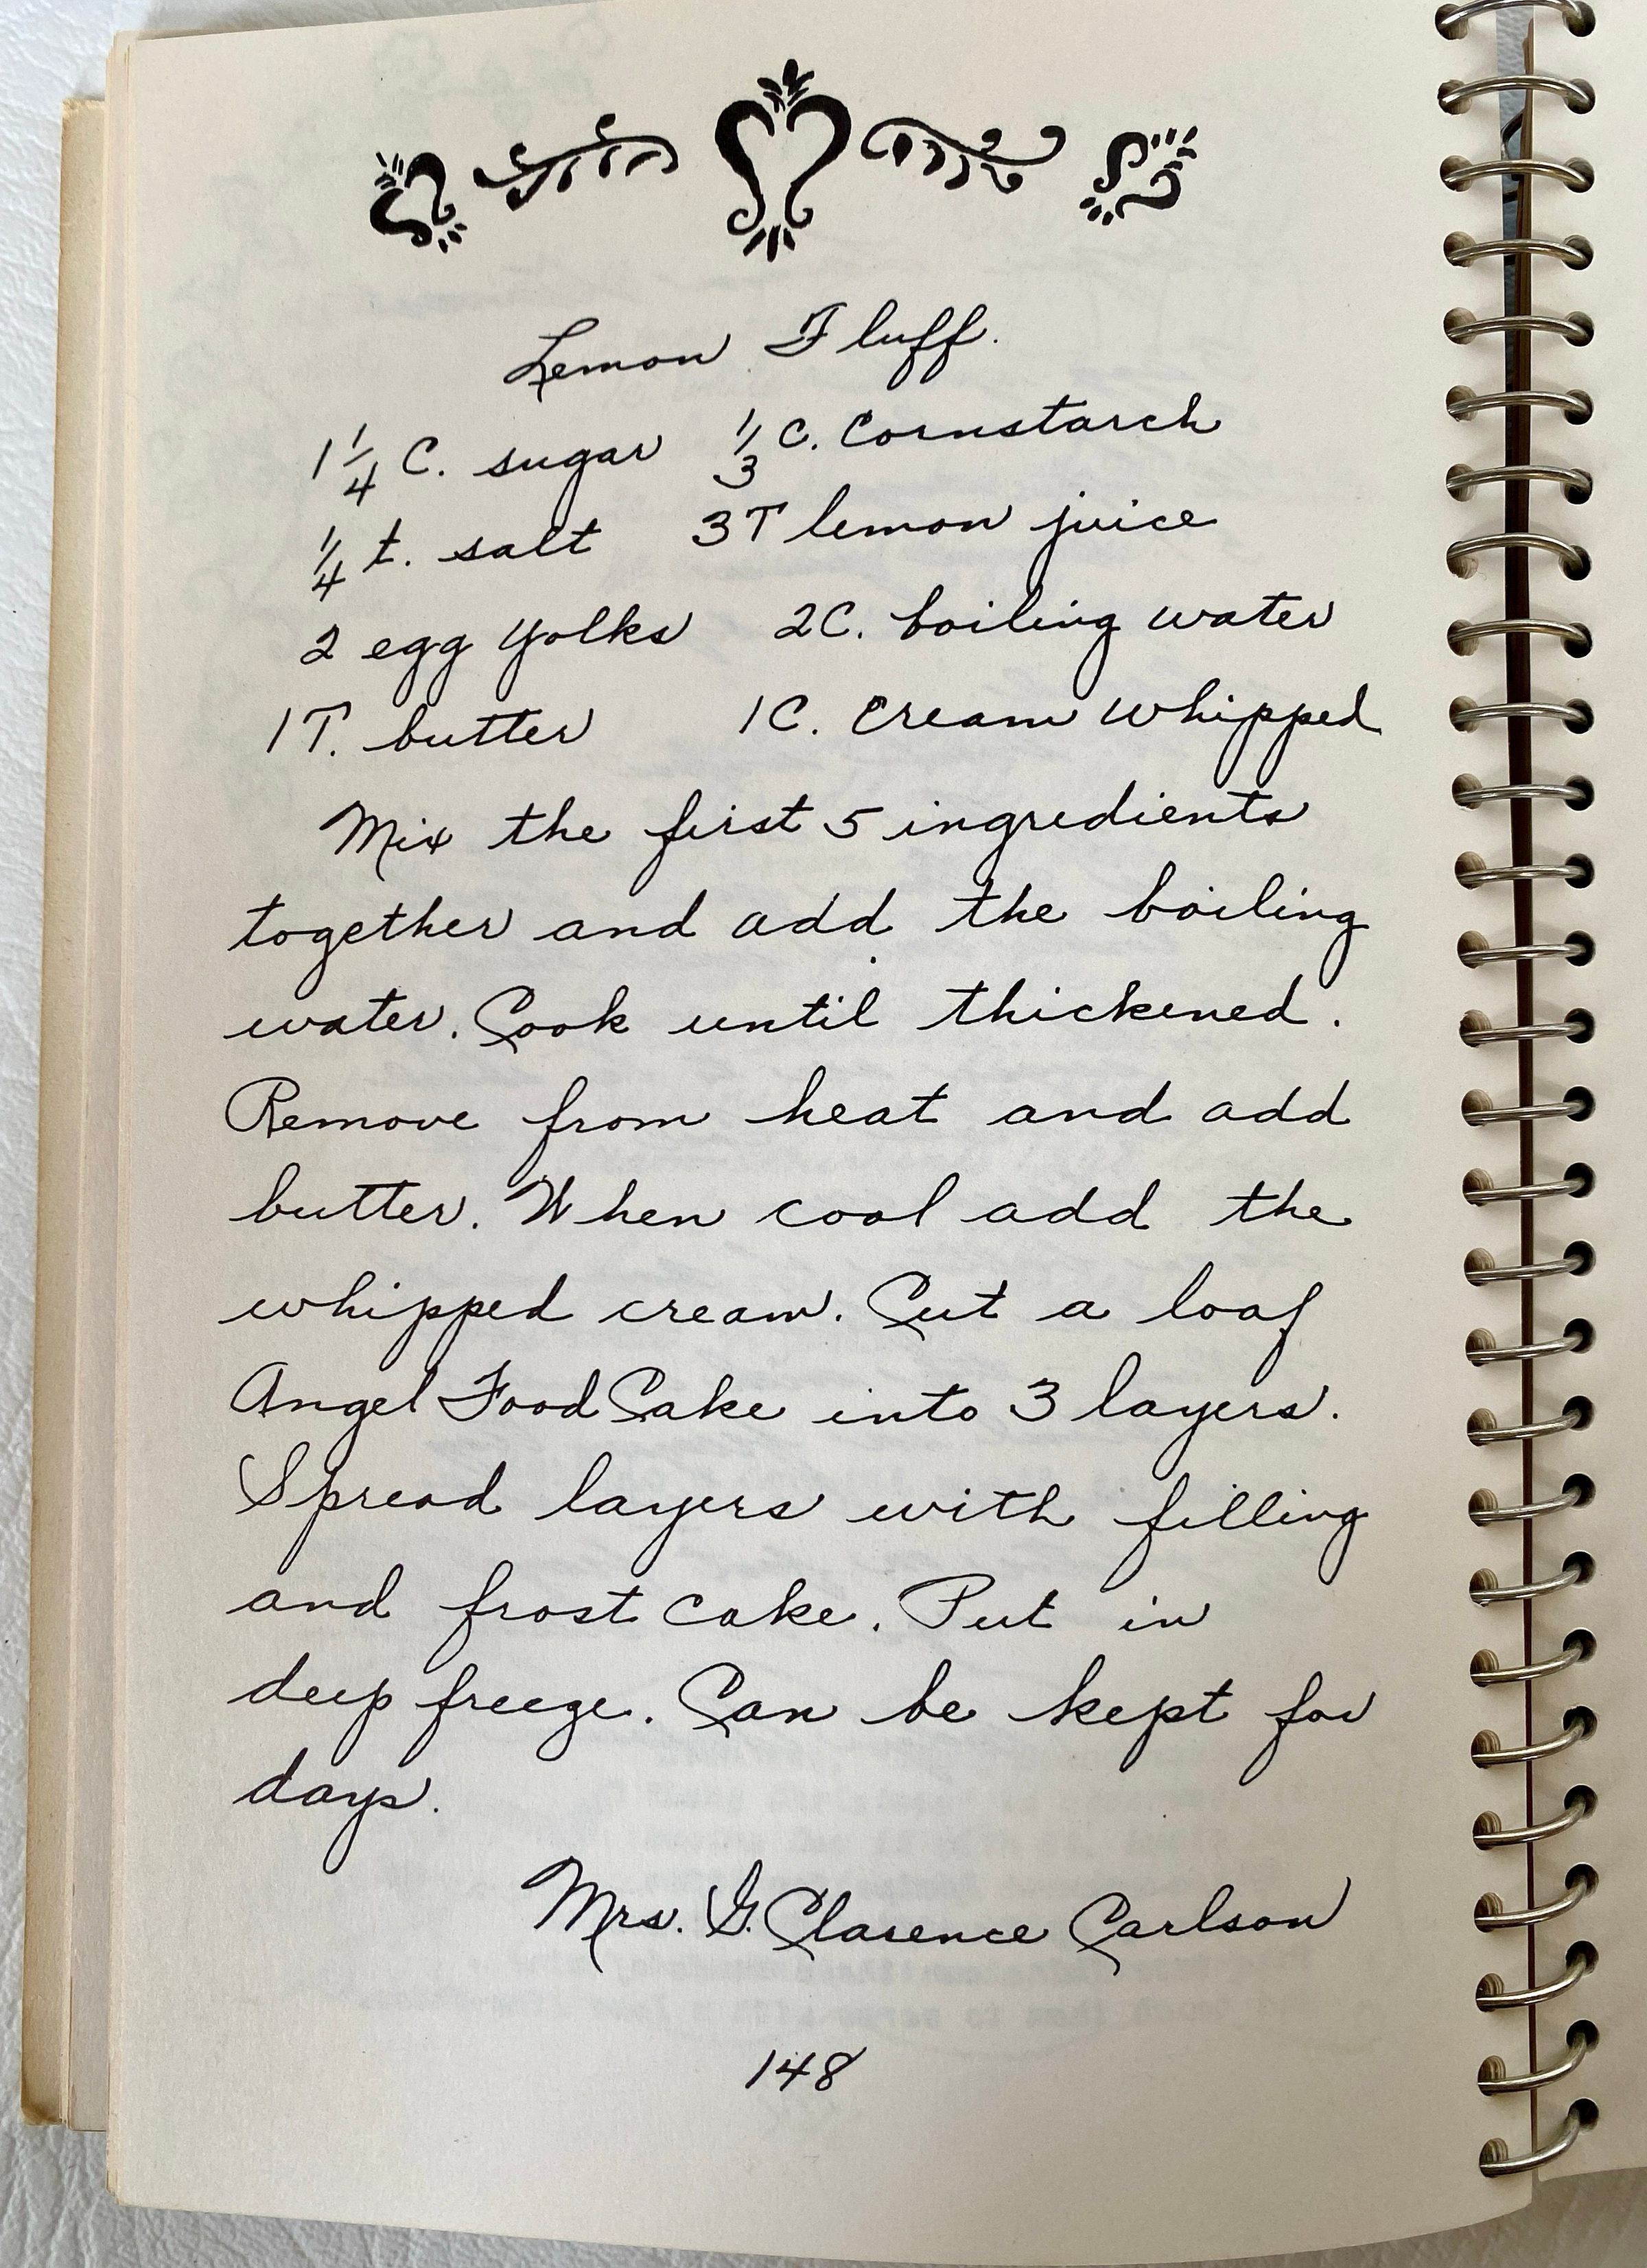 Lemon Fluff.
1 1/4 C. sugar 1/3 C. Cornstarch
1/4 t. salt 3T lemon juice
2 egg yolks 2C. boiling water
1T. butter 1C. cream whipped
Mix the first 5 ingredients
together and add the boiling
water. Cook until thickened.
Remove from heat and add
butter. When cool add the
whipped cream. Cut a loaf
Angel Food Cake into 3 layers.
Spread layers with filling
and frost cake. Put in
deep freeze. Can be kept for
days.
Mrs. G. Clarence Carlson
148